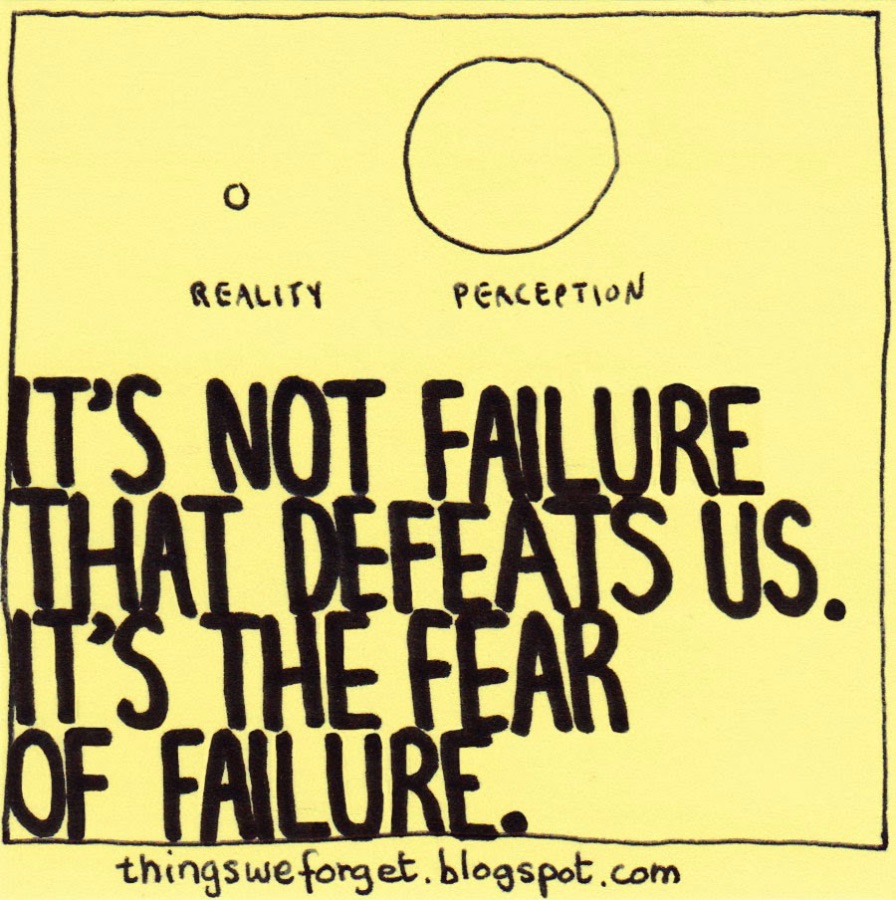 REALITY PERCEPTION
IT'S NOT FAILURE
THAT DEFEATS US.
IT'S THE FEAR
OF FAILURE.
thingsweforget.blogspot.com